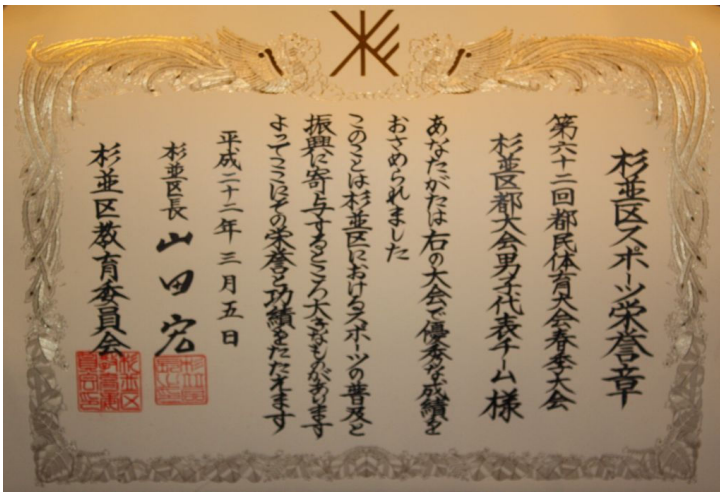 杉並区スポーツ栄誉章
第六十二回都民体育大会春季大会
杉並区都大会男子代表チーム様
あなたがたは右の大会で優秀な成績を
おさめられました
このことは杉並区におけるスポーツの普及と
振興に寄与するところ大きなものがあります
よってここにその栄誉と功績をたたえます
平成二十二年三月五日
杉並区長 山田宏
杉並区教育委員会